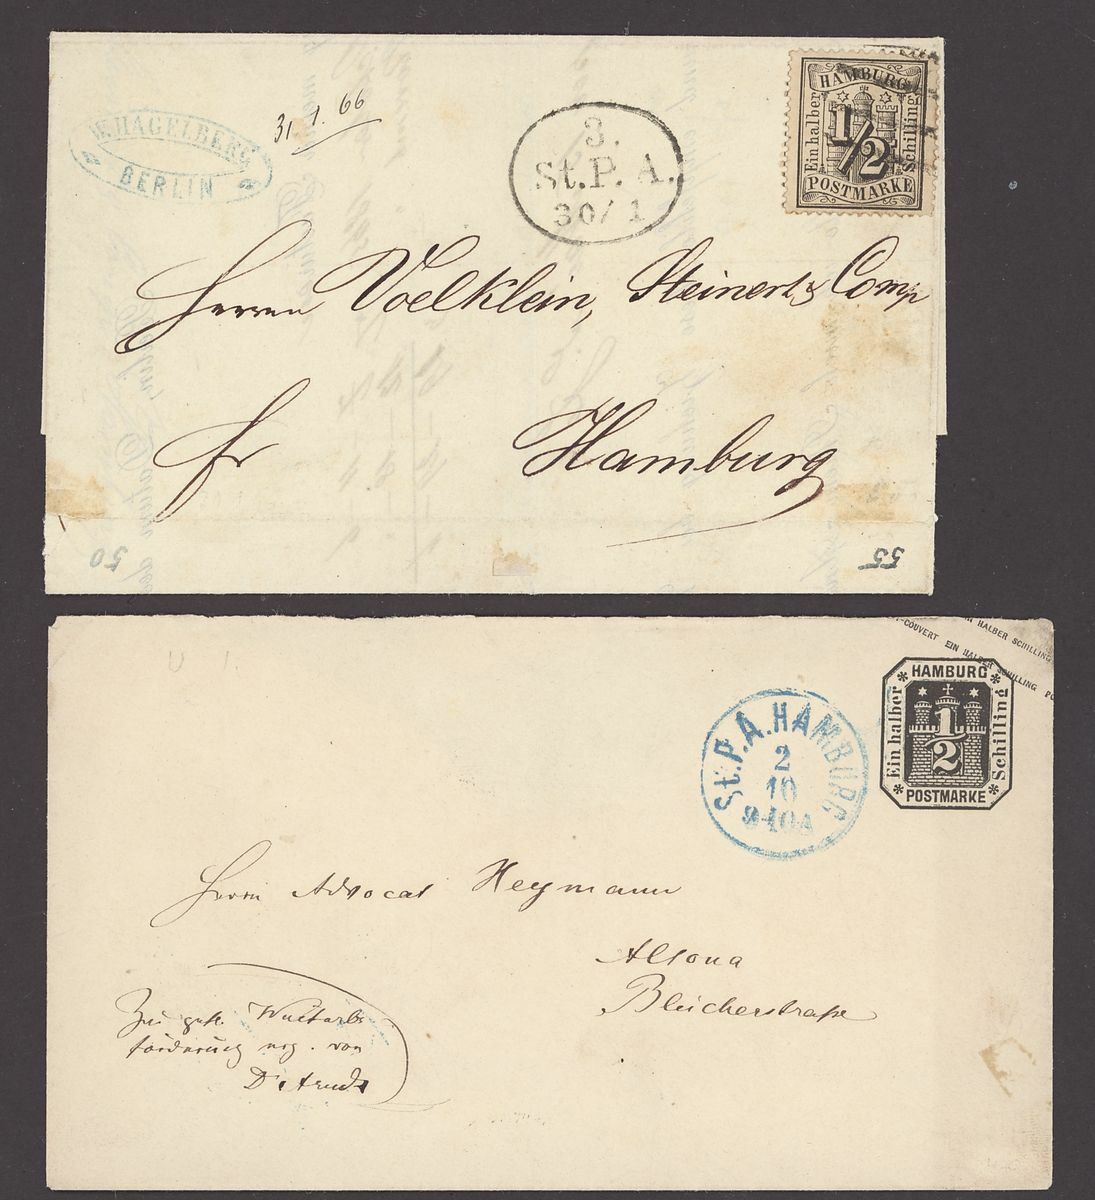 W. HAGELBERG
BERLIN
31.1.66
3.
St.P. A.
30/1
HAMBURG
Ein halber
1/2
Schilling
POSTMARKE
Herren Voelklein, Steinert & Comp
fr Hamburg
50
55
COUVERT EIN HALBER SCHILLING
HALBER SCHILLING
HAMBURG
Ein halber
1/2
Schilling
POSTMARKE
St.P.A. HAMBURG
2
10
9-10A
Herrn Advocat Heymann
Altona
Blücherstraße
Zu
von
Dr Arndt